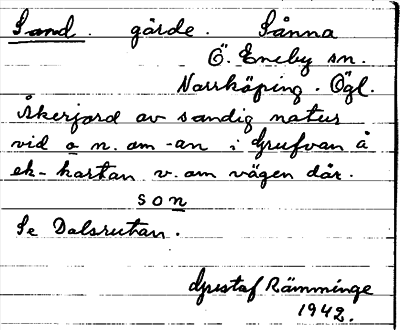 Sand. gärde. Sånna
Ö. Eneby sn.
Norrköping. Ögl.
Åkerjord av sandig natur
vid o n. om -an i Grufvan å
ek-kartan v. om vägen där.
son
Se Dalsrutan.
Gustaf Rämminge
1942.